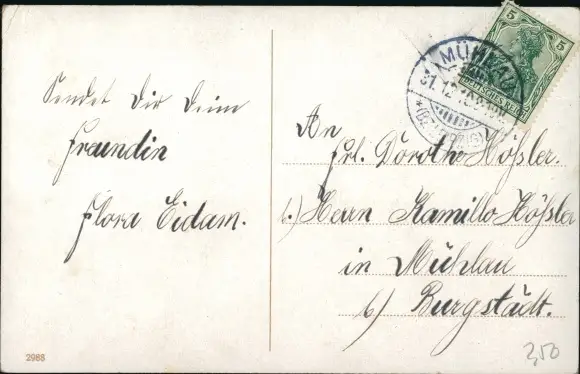 Sendet Dir Deine
Freundin
Flora Eidam.
2968
An
Frl. Dorothe Hößler.
b.) Herrn Kamillo Hößler
in Mühlau
b) Burgstädt.
5 5
DEUTSCHES REICH
MÜHLAU
31.12
3,50